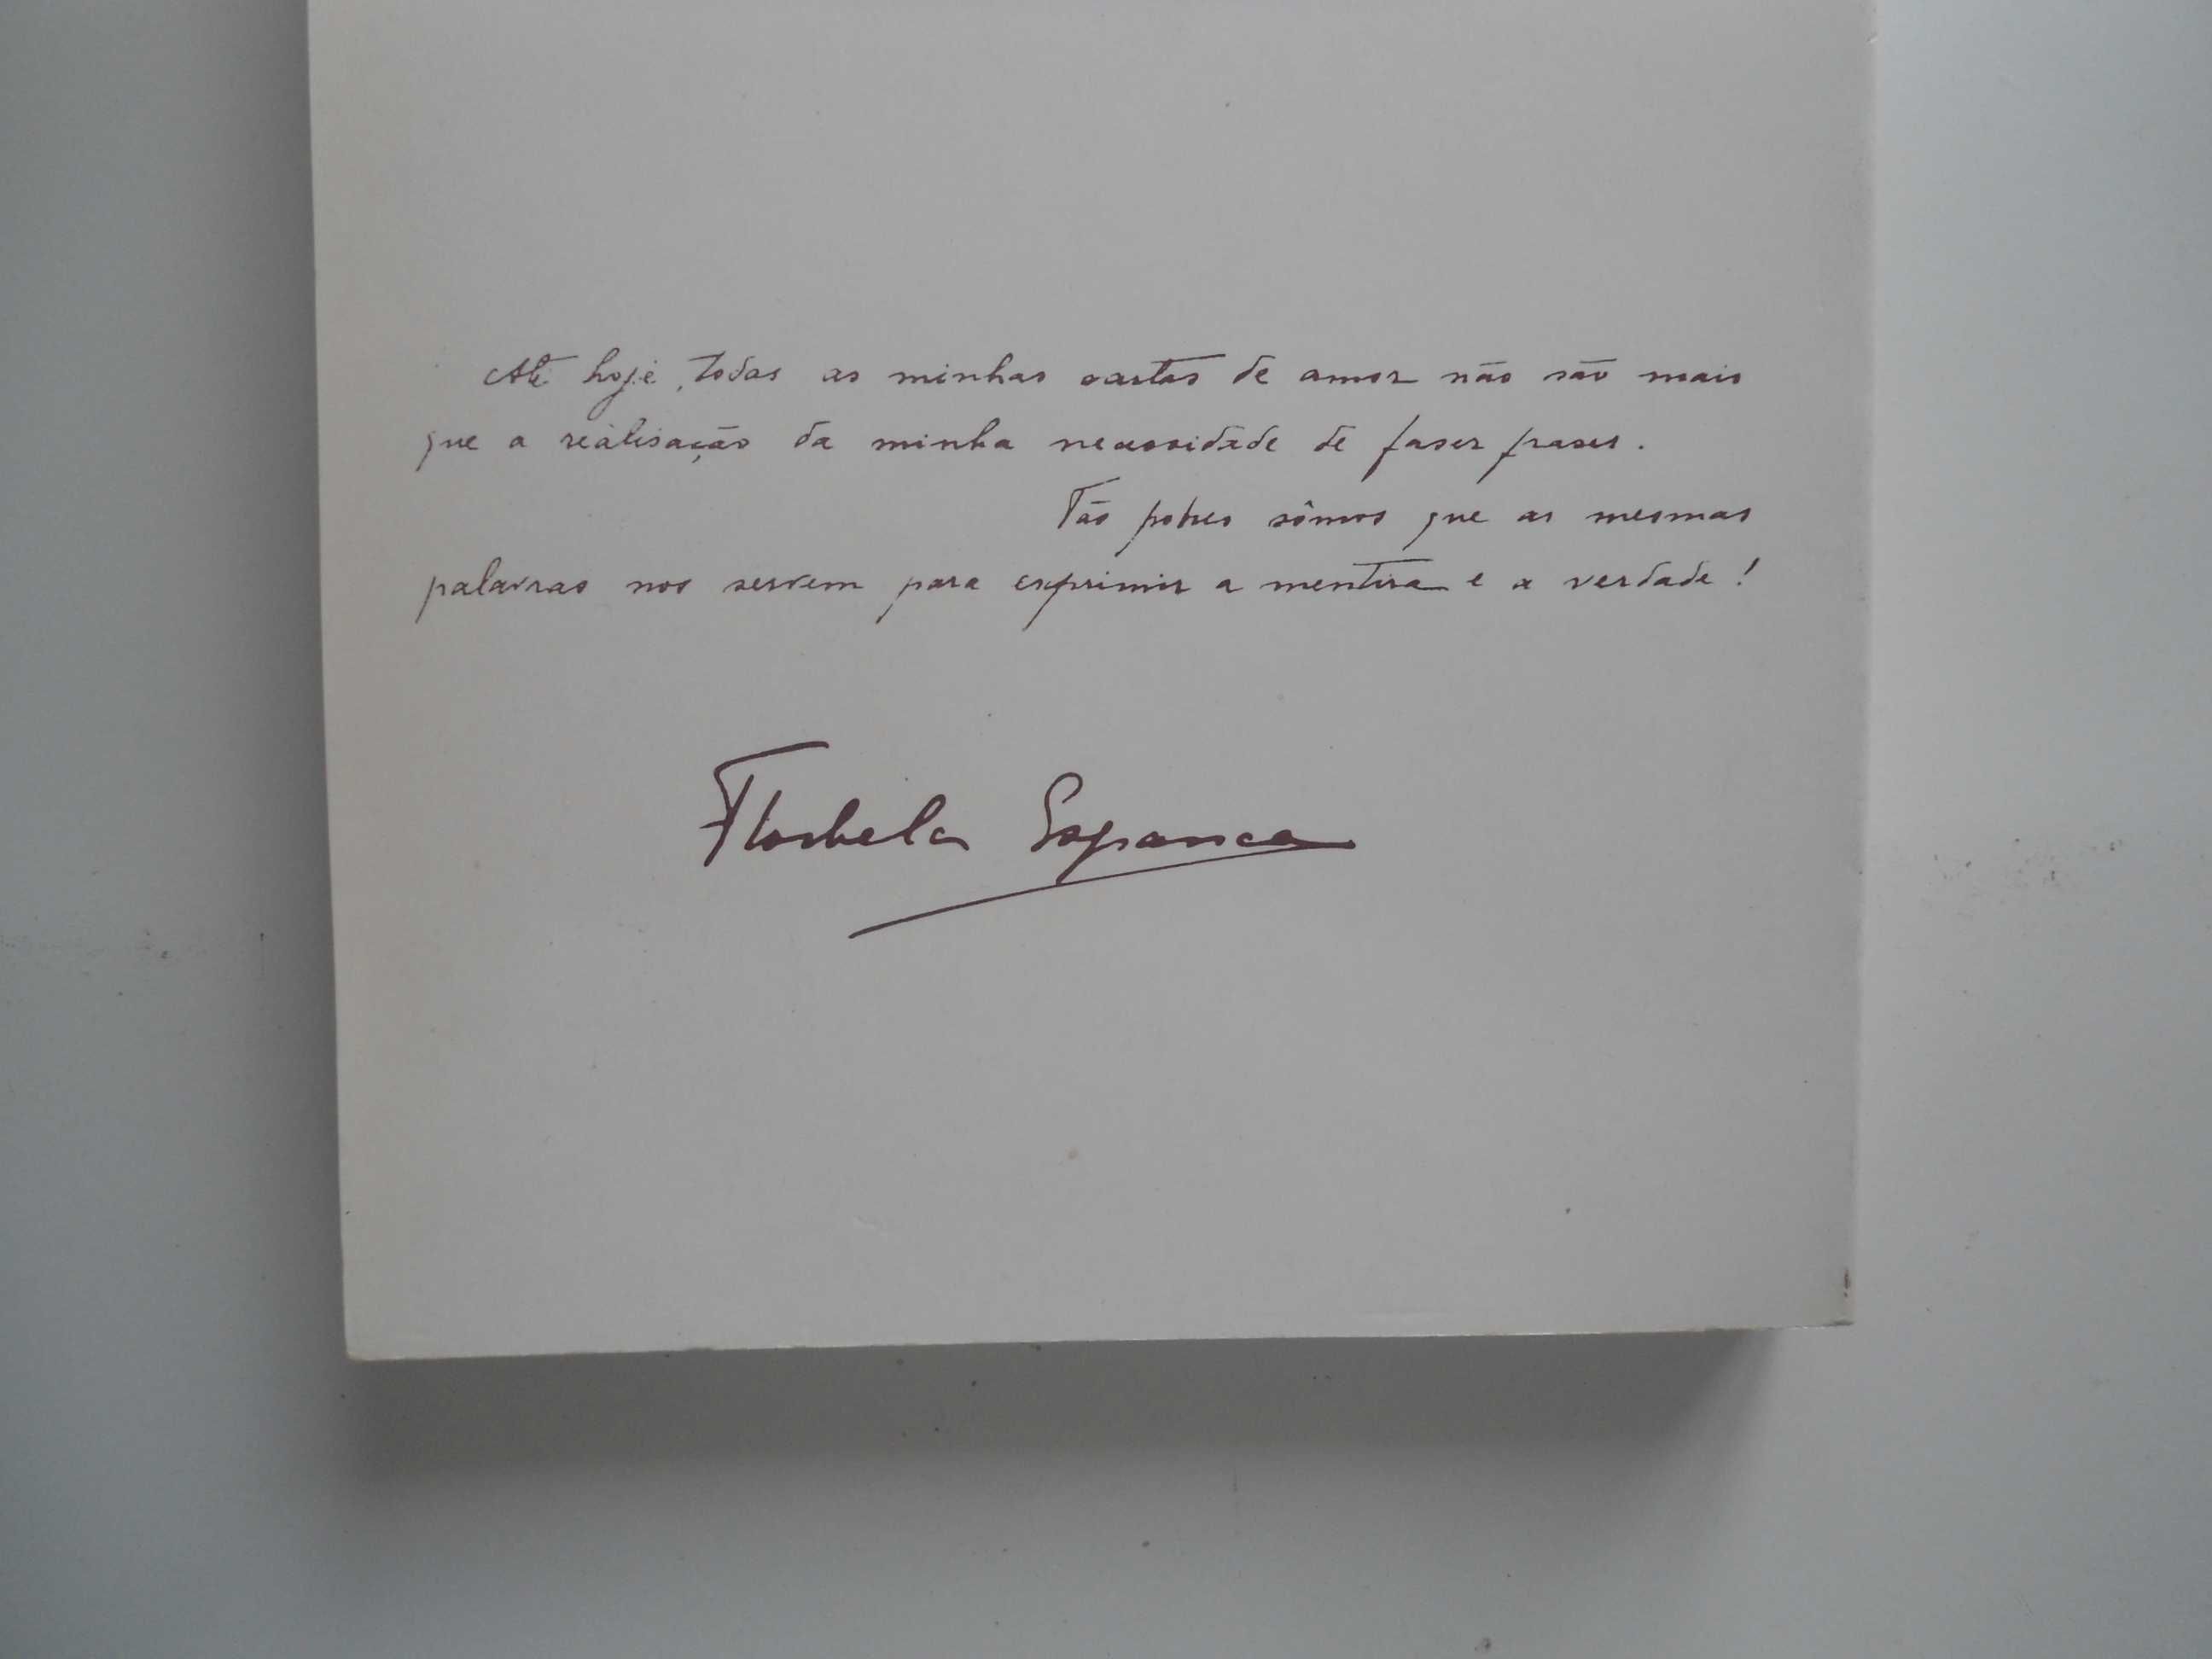 Até hoje, todas as minhas cartas de amor não são mais
que a realisação da minha necessidade de faser frases.
Tão pobres sômos que as mesmas
palavras nos servem para exprimir a mentira e a verdade!
Florbela Espanca